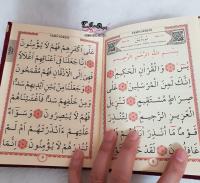 بِسْمِ اللّٰهِ الرَّحْمٰنِ الرَّحِيمِ
يٰسٓ وَالْقُرْاٰنِ الْحَكِيمِ
اِنَّكَ لَمِنَ الْمُرْسَلِينَ عَلٰى
صِرَاطٍ مُسْتَقِيمٍ تَنْزِيلَ
الْعَزِيزِ الرَّحِيمِ لِتُنْذِرَ
قَوْمًا مَا اُنْذِرَ
عَلٰى اَكْثَرِهِمْ فَهُمْ لَا يُؤْمِنُونَ
اِنَّا جَعَلْنَا فِى اَعْنَاقِهِمْ اَغْلَالًا
فَهِىَ اِلَى الْاَذْقَانِ فَهُمْ مُقْمَحُونَ
وَجَعَلْنَا مِنْ بَيْنِ اَيْدِيهِمْ سَدًّا
وَمِنْ خَلْفِهِمْ سَدًّا فَاَغْشَيْنَاهُمْ
فَهُمْ لَا يُبْصِرُونَ وَسَوَاءٌ
عَلَيْهِمْ ءَاَنْذَرْتَهُمْ اَمْ لَمْ
تُنْذِرْهُمْ لَا يُؤْمِنُونَ اِنَّمَا